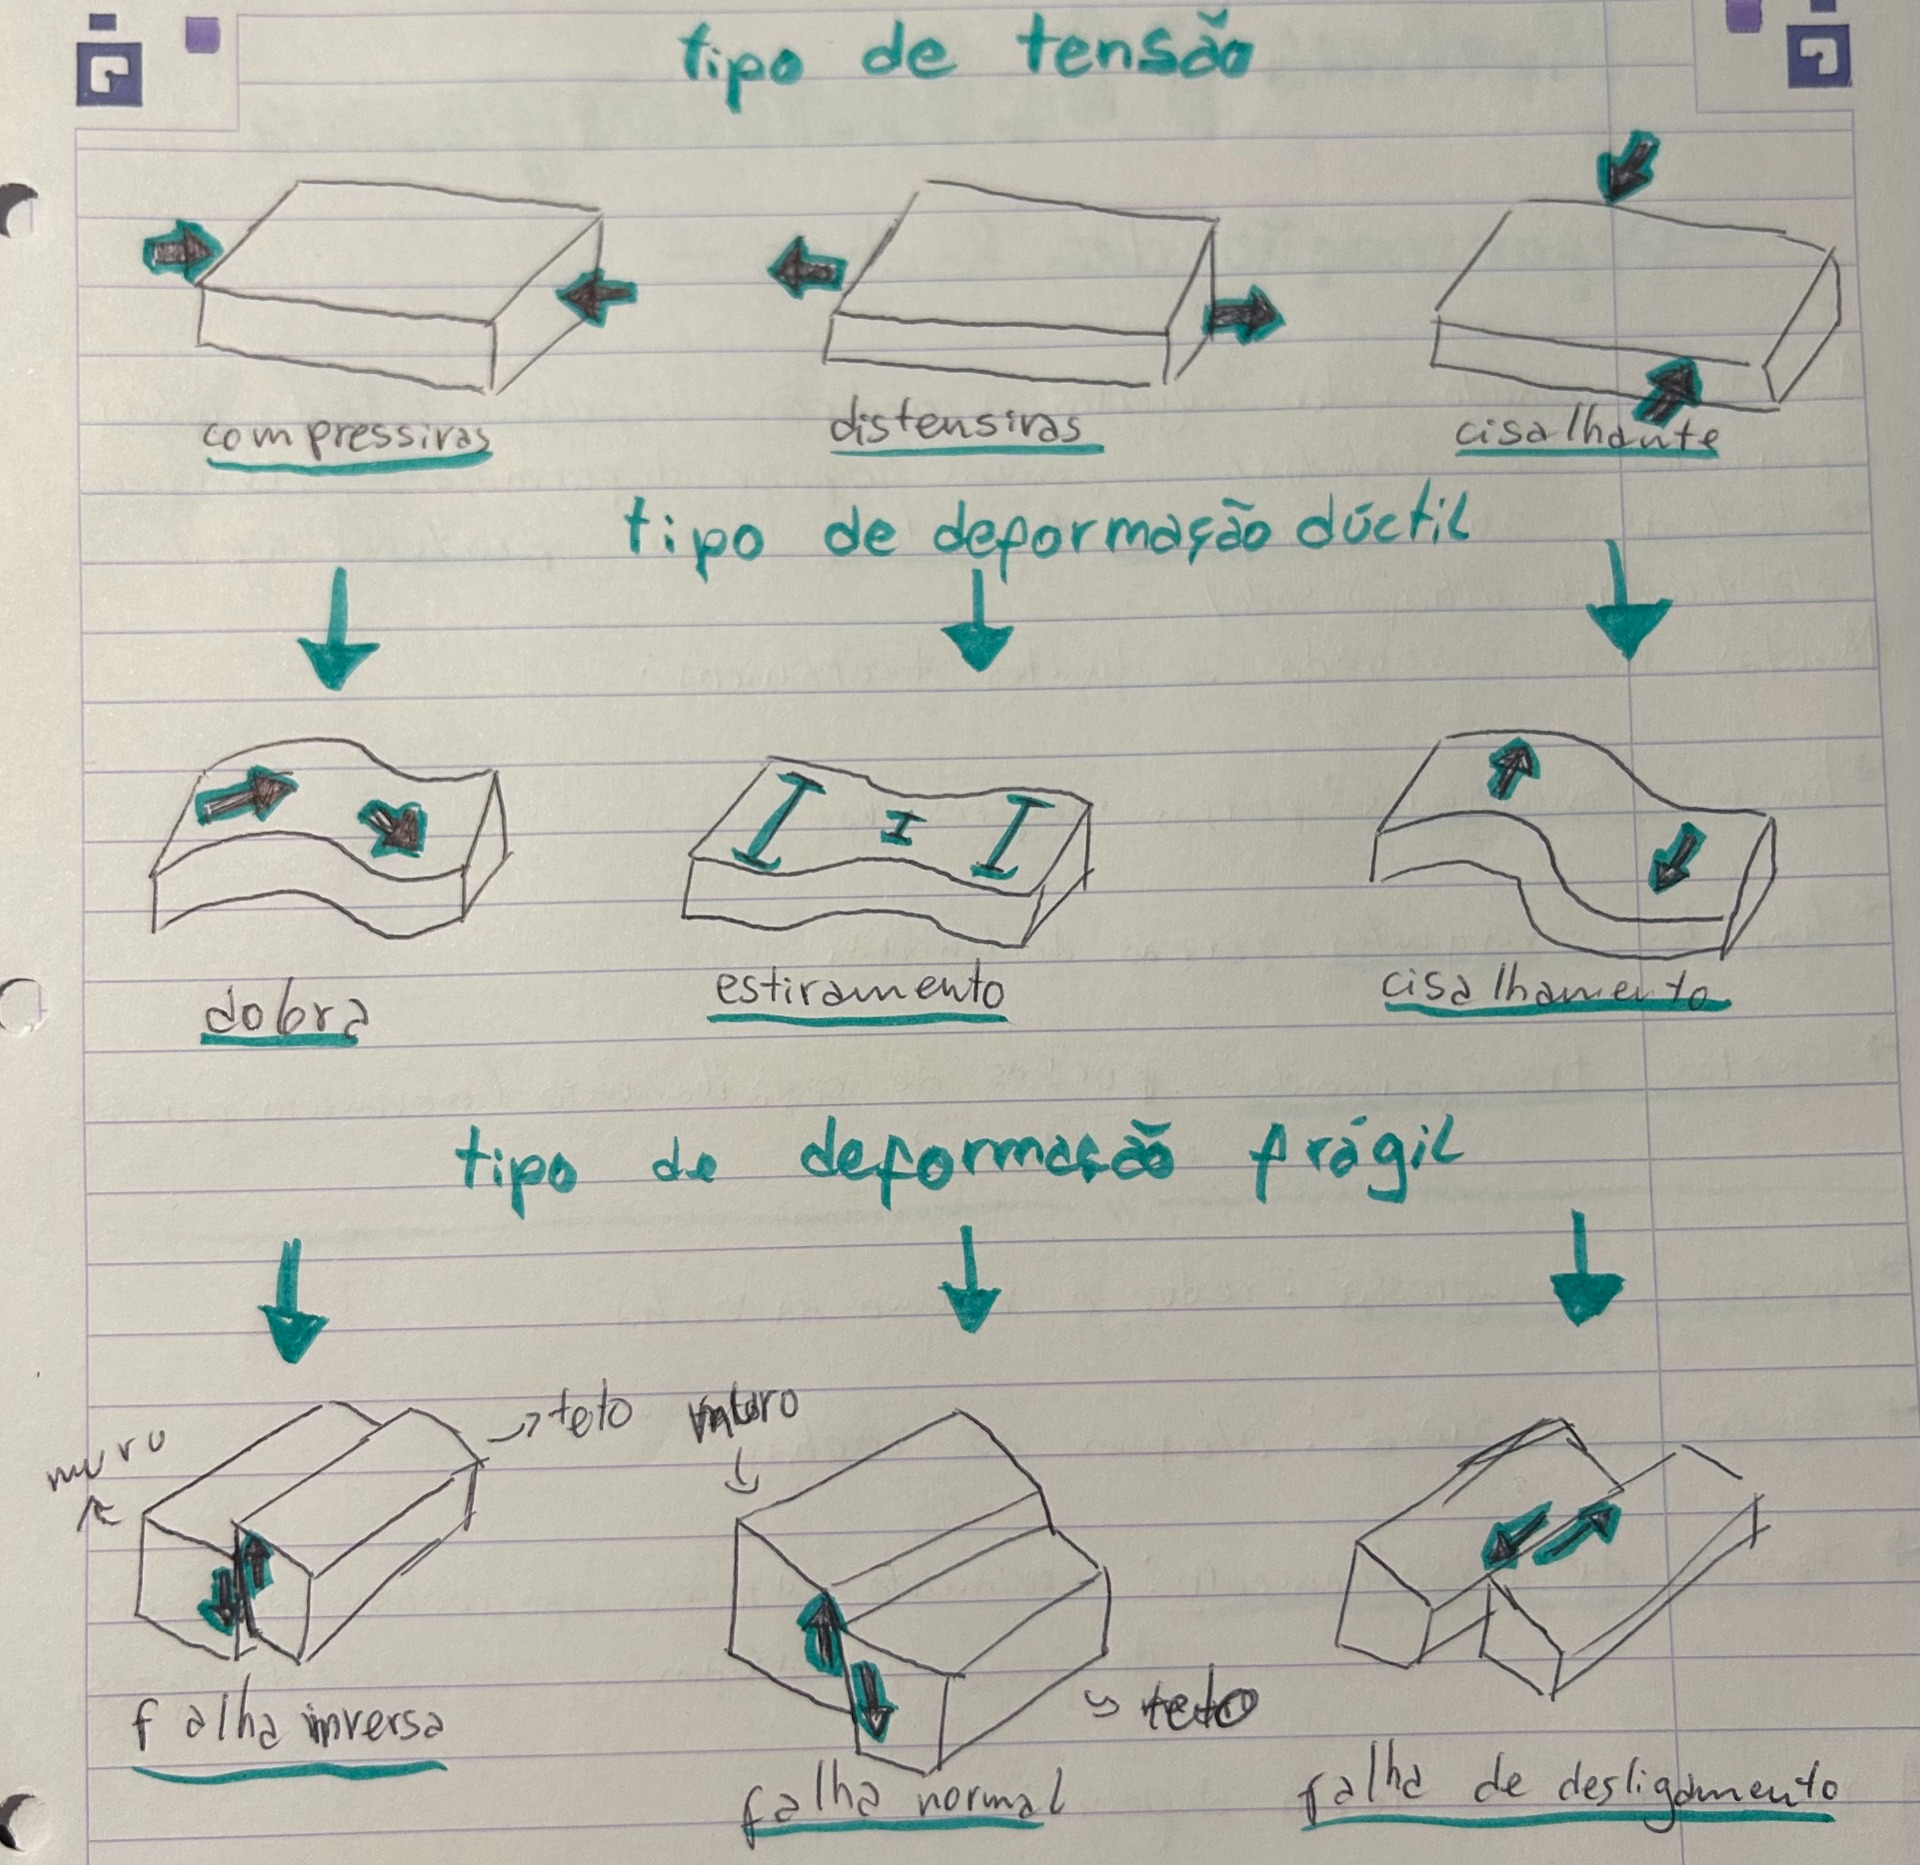 tipo de tensão
compressivas distensivas cisalhante
tipo de deformação dúctil
dobra estiramento cisalhamento
tipo de deformação frágil
muro teto muro
teto
falha inversa falha normal falha de desligamento